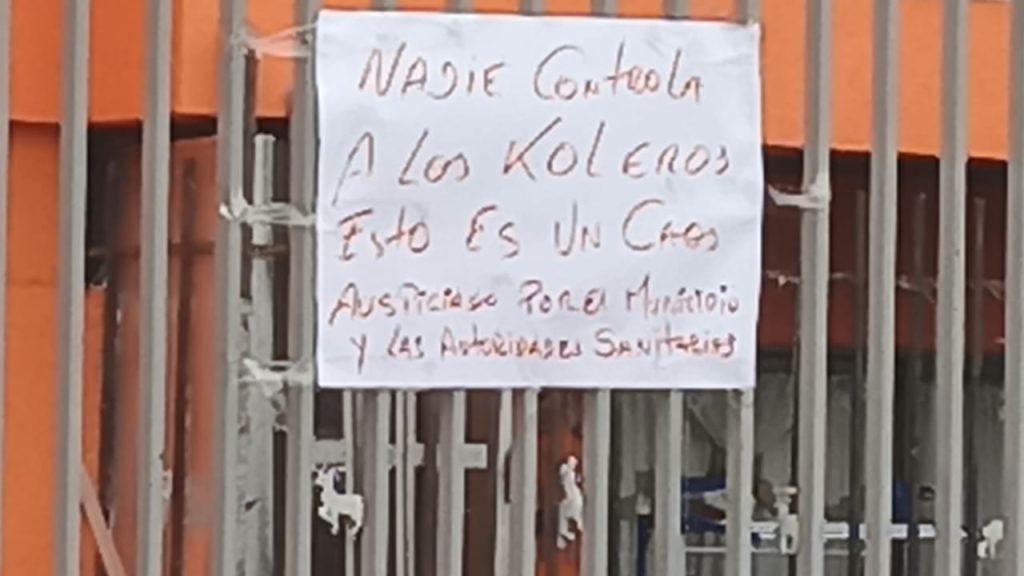 NADIE CONTROLA
A LOS KOLEROS
ESTO ES UN CAOS
AUSPICIADO POR EL MUNICIPIO
Y LAS AUTORIDADES SANITARIAS